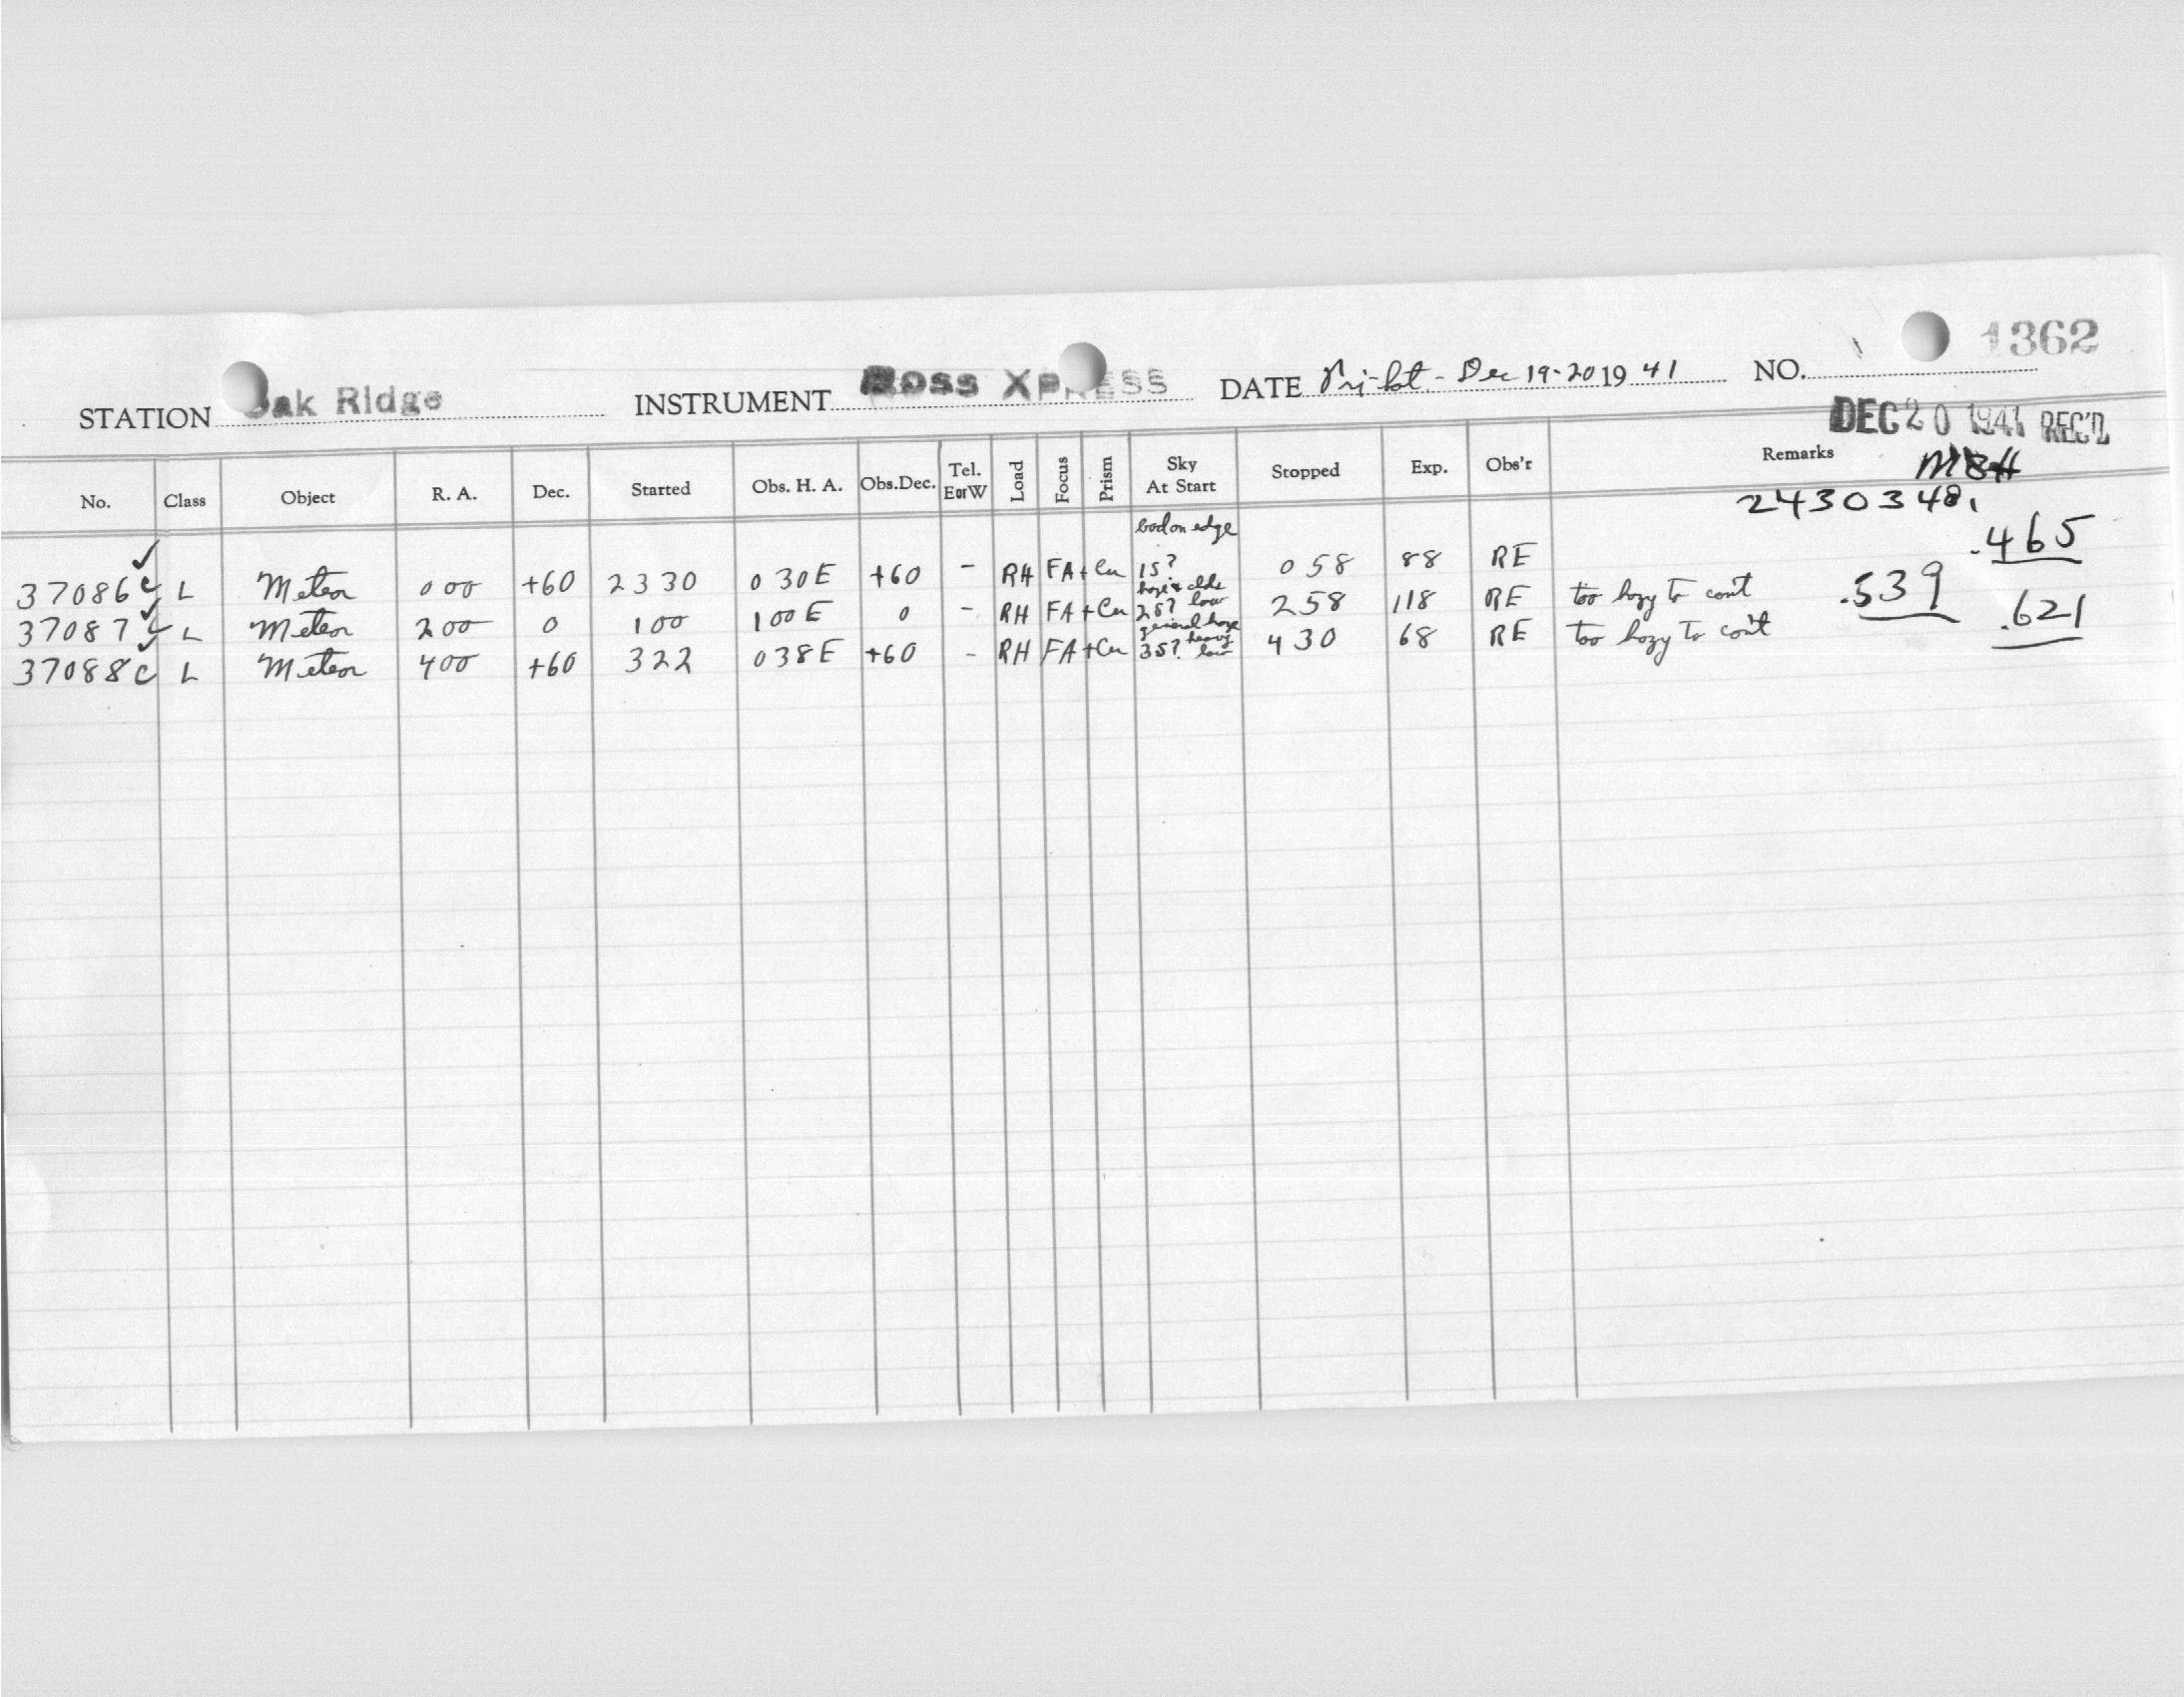 1362
STATION Oak Ridge INSTRUMENT Ross XPRESS DATE Fri-Sat - Dec 19-20 19 41 NO.
DEC 20 1941 REC'D
No. Class Object R. A. Dec. Started Obs. H. A. Obs.Dec. Tel. EorW Load Focus Prism Sky At Start Stopped Exp. Obs'r Remarks
MBH
2430348.
bad on edge
37086c L Meteor 000 +60 2330 030E +60 - RH FA + Cu 15? 058 88 RE .465
haze & clds low
37087c L Meteor 200 0 100 100E 0 - RH FA + Cu 25? 258 118 RE too hazy to con't .539
general haze heavy low
37088c L Meteor 400 +60 322 038E +60 - RH FA + Cu 35? 430 68 RE too hazy to con't .621